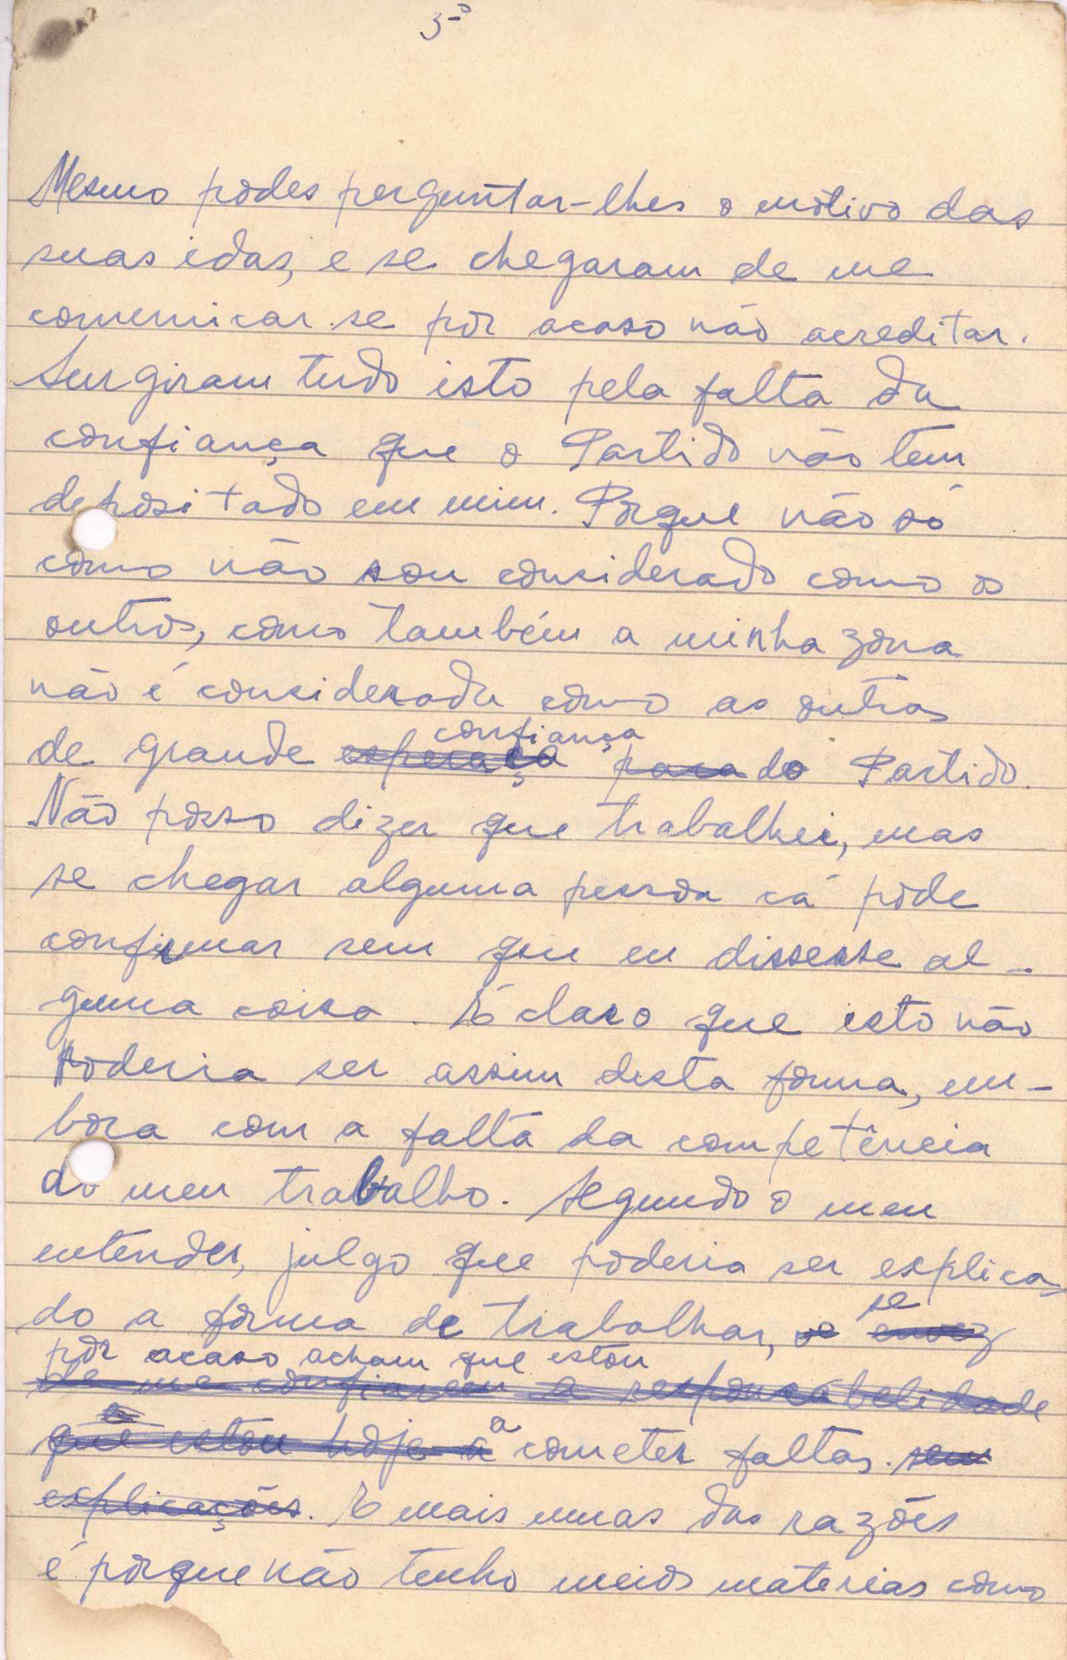 3º
Mesmo podes perguntar-lhes o motivo das
suas idas, e se chegaram de me
comunicar se por acaso não acreditar.
Surgiram tudo isto pela falta da
confiança que o Partido não tem
depositado em mim. Porque não só
como não sou considerado como os
outros, como também a minha zona
não é considerada como as outras
confiança
de grande esperaça para do Partido.
Não posso dizer que trabalhei, mas
se chegar alguma pessoa cá pode
confirmar sem que eu dissesse al-
guma coisa. E claro que isto não
Poderia ser assim desta forma, em-
bora com a falta da competência
do meu trabalho. Segundo o meu
entender, julgo que poderia ser explica
do a forma de trabalhar, se
por acaso acham que estou
de me confiarem a responsabelidade
que estou hoje a a cometer faltas. sem
explicações. E mais umas das razões
é porque não tenho meios materias como